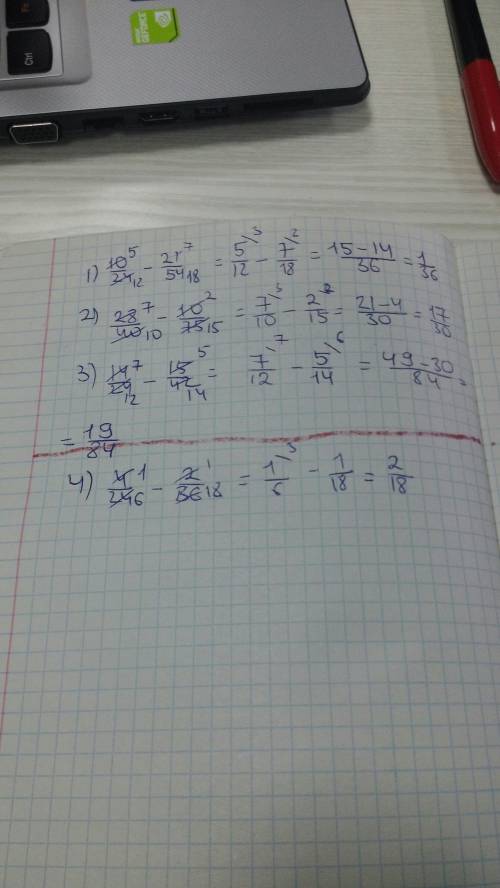 Fn
Ctrl
GEFORCE
1) 10⁵/24₁₂ − 21⁷/54₁₈ = 5/12 \³ − 7/18 \² = 15−14/36 = 1/36
2) 28⁷/40₁₀ − 10²/75₁₅ = 7/10 \³ − 2/15 \² = 21−4/30 = 17/30
3) 14⁷/24₁₂ − 15⁵/42₁₄ = 7/12 \⁷ − 5/14 \⁶ = 49−30/84 =
= 19/84
4) 4¹/24₆ − 2¹/36₁₈ = 1/6 \³ − 1/18 = 2/18